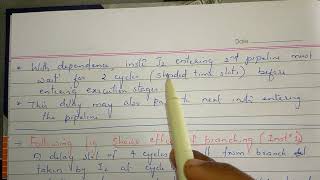 Date
• With dependence, Instⁿ I2 entering 2nd pipeline must
wait for 2 cycles (shaded time slots) before
entering execution stage.
• This delay may also to next instⁿ entering
the pipeline
→ Following is shows effect of branching (Instⁿ
delay slot of 4 cycles from branch
taken by I2 at cycle